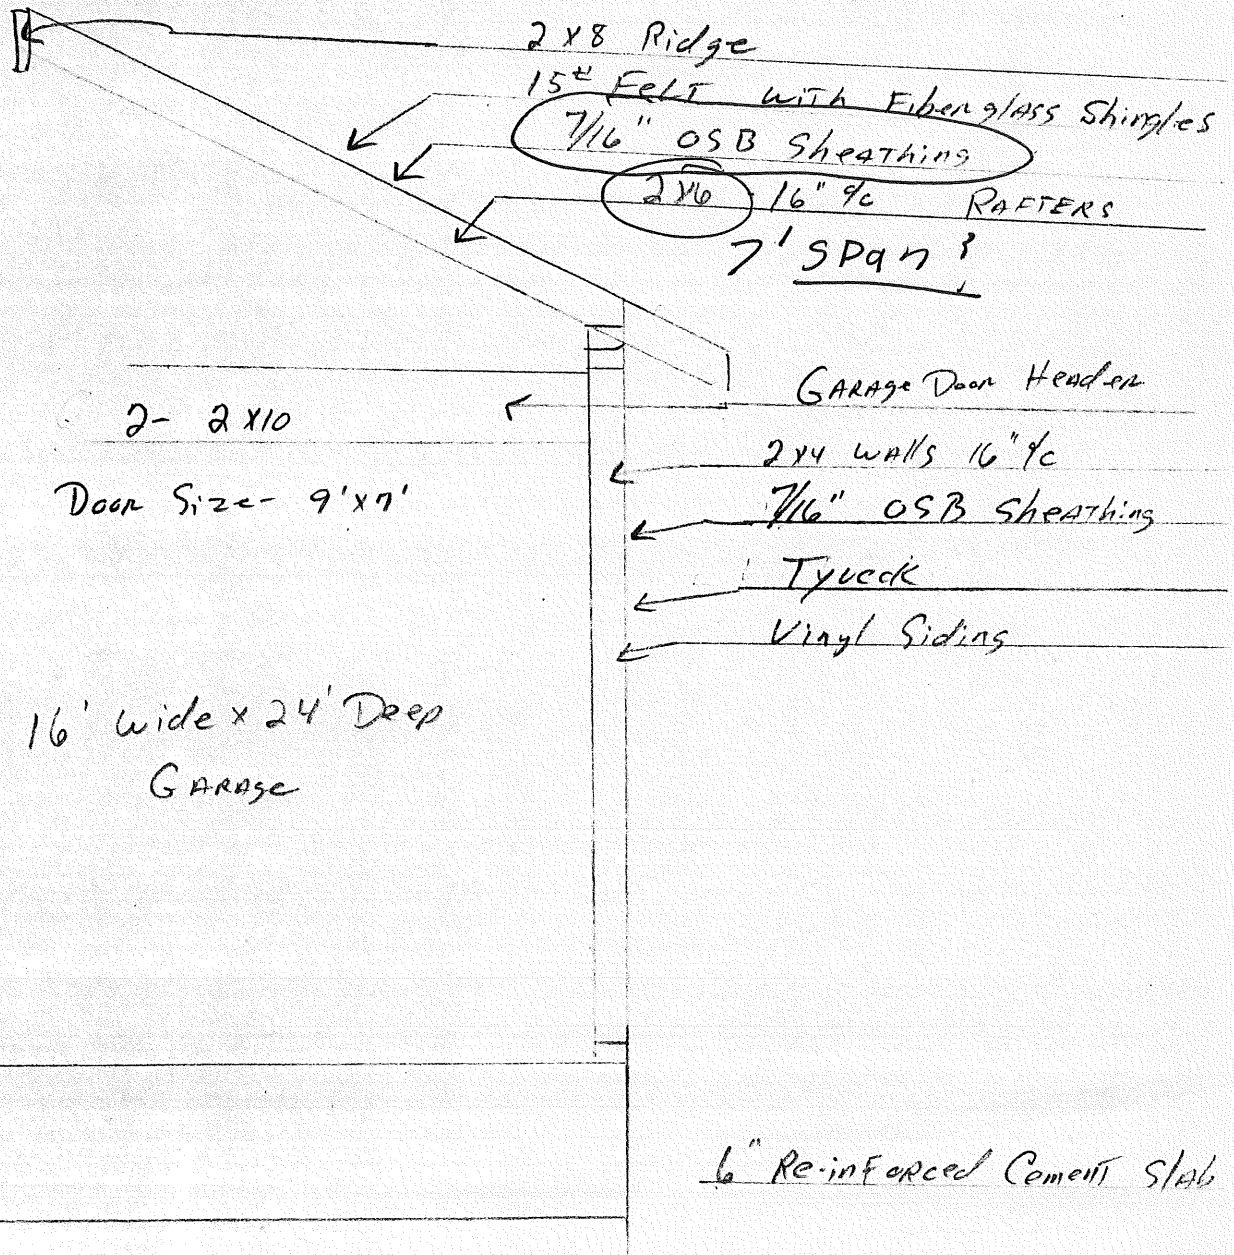 2x8 Ridge
15# Felt with Fiberglass Shingles
7/16" OSB Sheathing
2x6 16" o/c RAFTERS
7' SPan
GARAGE Door Header
2- 2x10
2x4 WAlls 16" o/c
Door Size- 9'x7'
7/16" OSB Sheathing
Tyveck
Vinyl Siding
16' wide x 24' Deep
GARAGE
6" Re-inForced Cement Slab